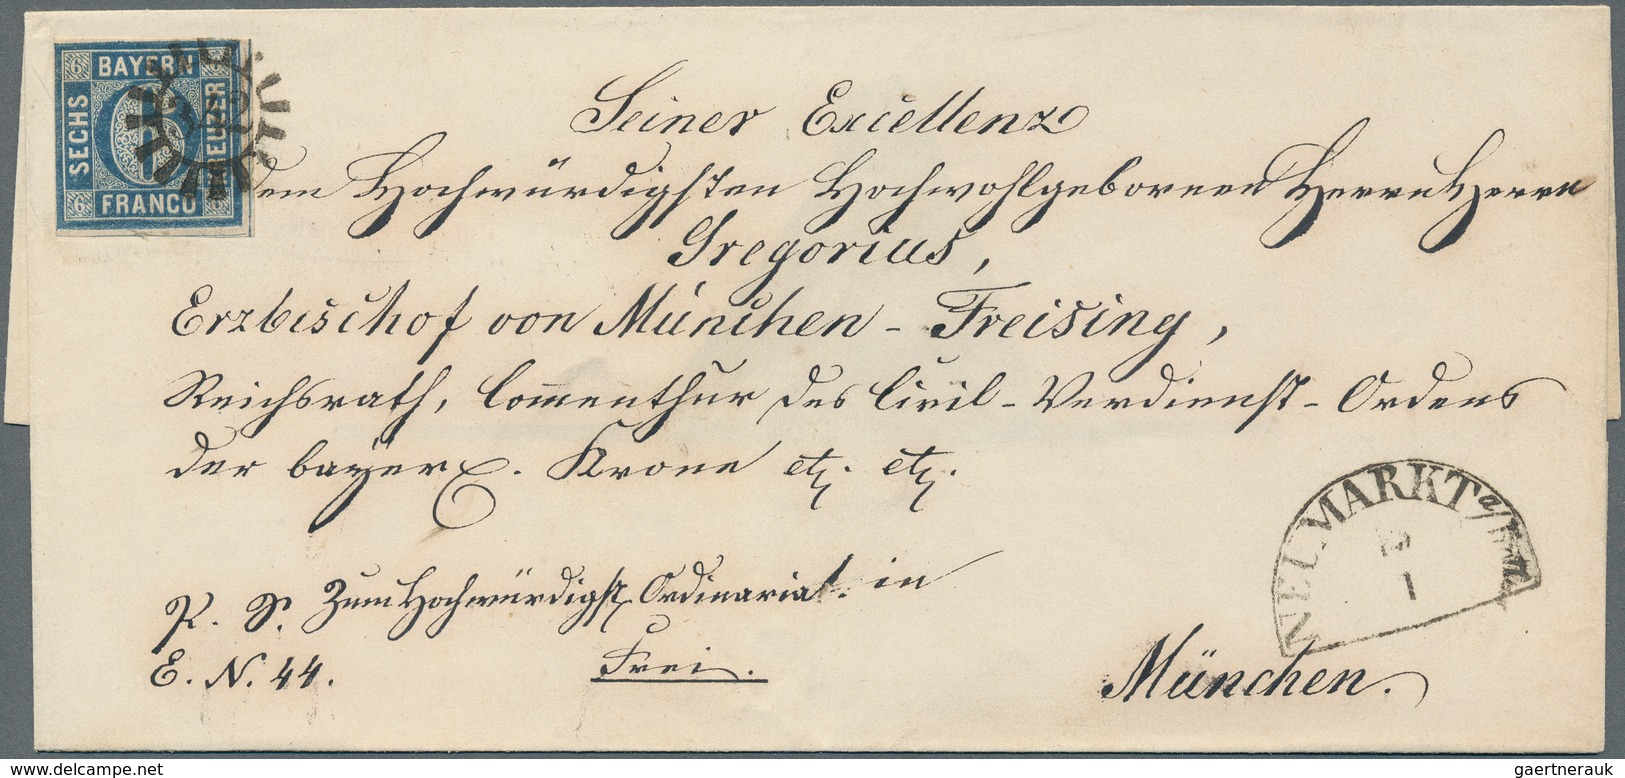 BAYERN
SECHS
KREUZER
FRANCO
6 6 6
Seiner Excellenz
dem Hochwürdigsten Hochwohlgebornen Herrn Herrn
Gregorius,
Erzbischof von München-Freising,
Reichsrath, Commenthur des Civil-Verdienst-Ordens
der bayer. Krone etz. etz.
NEUMARKT a/Rott.
1
P. S. Zum Hochwürdigst. Ordinariat in
E. N. 44.
Frei.
München.
https://www.delcampe.net
gaertnerauk